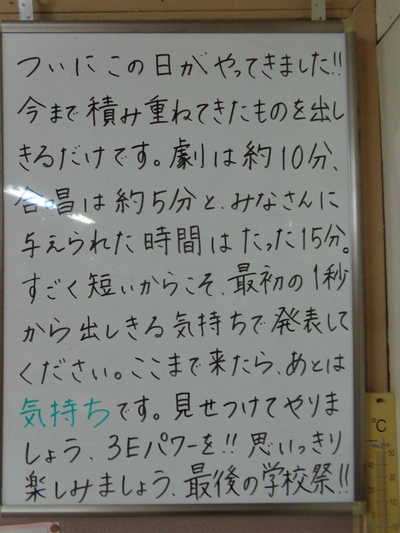 ついにこの日がやってきました!!
今まで積み重ねてきたものを出し
きるだけです。劇は約10分、
合唱は約5分と、みなさんに
与えられた時間はたった15分。
すごく短いからこそ、最初の1秒
から出しきる気持ちで発表して
ください。ここまで来たら、あとは
気持ちです。見せつけてやりま
しょう、3Eパワーを!!思いっきり
楽しみましょう、最後の学校祭!!
℃